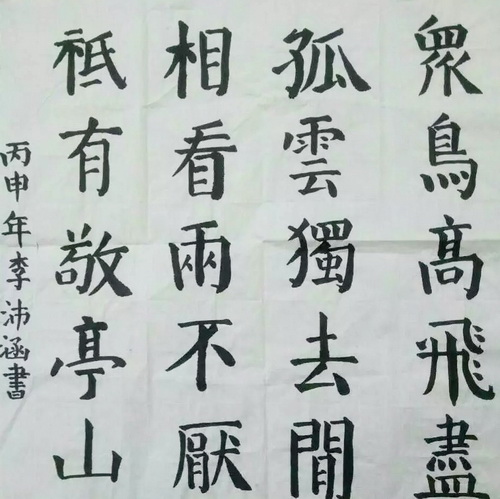 眾鳥髙飛盡
孤雲獨去閒
相看兩不厭
祗有敬亭山
丙申年李沛涵書